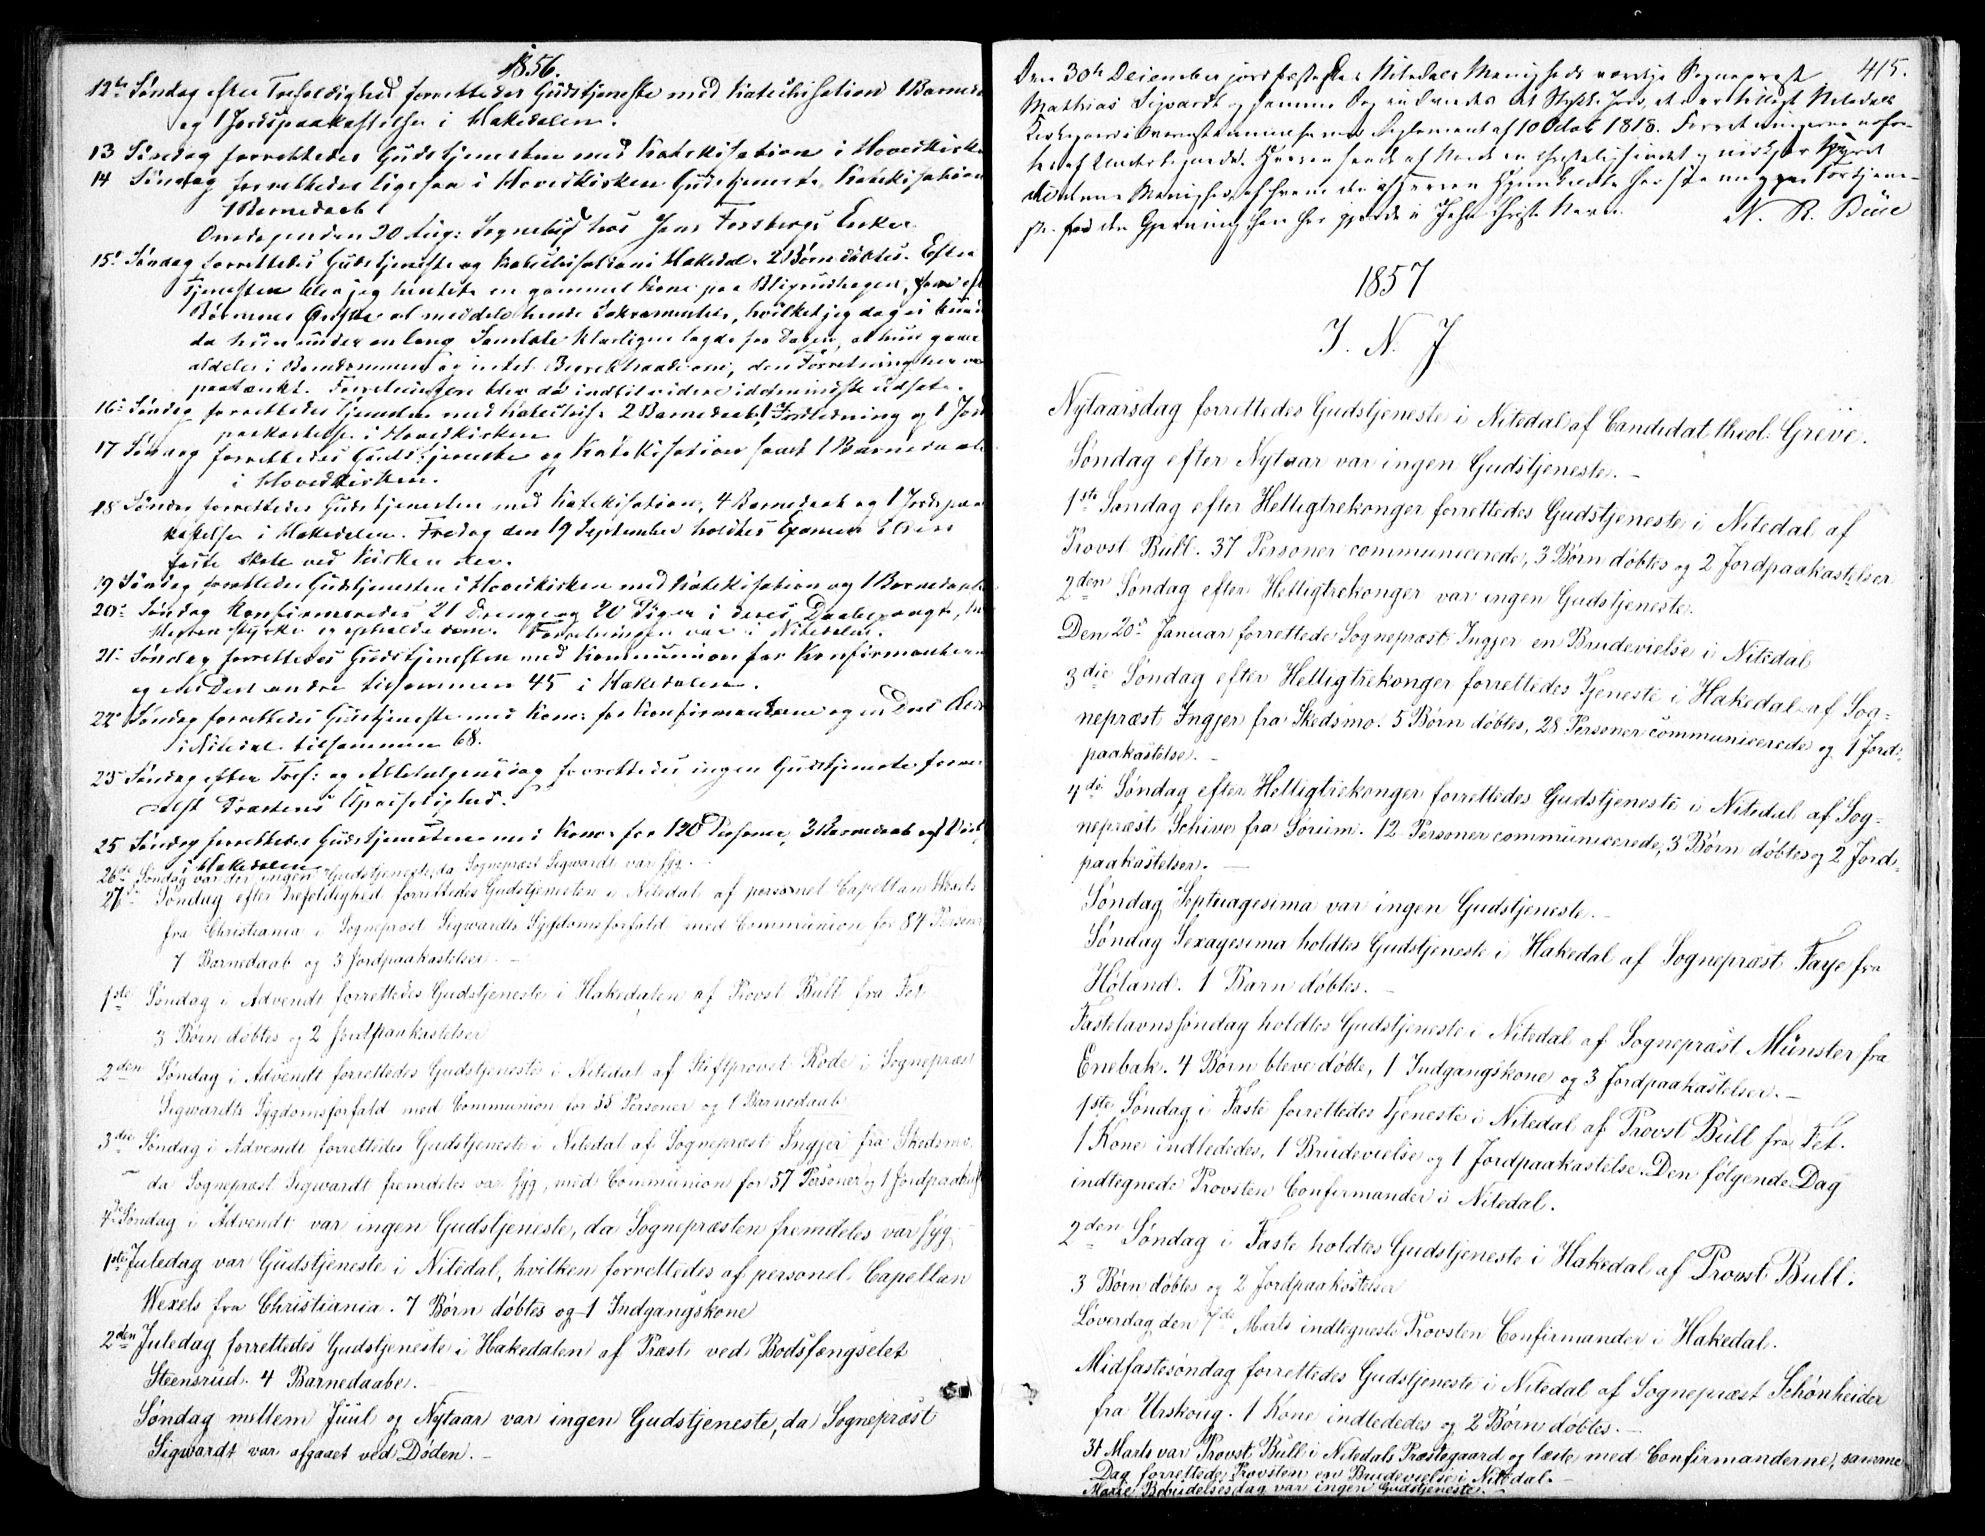 1856.
12te Søndag efter Trefoldighed forrettedes Gudstjeneste med Katechisation 1 Barnedaab
og 1 Jordpaakastelse i Hakedalen.
13 Søndag forrettedes Gudstjenesten med Katekisation i Hovedkirken
14 Søndag forrettedes ligesaa i Hovedkirken Gudstjeneste, Katekisation
1 Barnedaab
Onsdagen den 20 Aug: Sognebud hos Jens Forsbergs Enke
15d Søndag forrettedes Gudstjeneste og Katechisation i Hakedal. 2 Børn døbtes. Efter
Tjenesten blev jeg hentet en gammel Kone paa
Børnenes Ønske at meddele hende Sakramentet, hvilket jeg dog ei kunde
da hun under en lang Samtale klarligen lagde for Dagen, at hun
aldeles i Barndommen og intet Begreb havde om, den Forretning her var
paatænkt. Forretningen blev da indtil videre i det mindste udsat.
16d Søndag forrettedes Tjenesten med Katechis: 2 Barnedaab, 1 Indledning og 1 Jord
paakastelse i Hovedkirken
17 Søndag forrettedes Gudstjeneste og Katekisation samt 1 Barnedaab
i Hovedkirken.
18 Søndag forrettedes Gudstjenesten med Katekisation, 4 Barnedaab og 1 Jordpaa
kastelse i Hakedalen. Fredag den 19 September holdtes Examen i den
faste Skole ved Kirken der.
19 Søndag forrettedes Gudstjenesten i Hovedkirken med Katekisation og 1 Barnedaab
20d Søndag Konfirmeredes 21 Drenge og 20 Piger i deres Daabspagt,
Herren styrke og opholde dem. Forretningen var i Nitedalen.
21d Søndag forrettedes Gudstjenesten med Kommunion for Konfirmanterne
og en Deel andre tilsammen 45 i Hakedalen.
22d Søndag forrettedes Gudstjeneste med Kom: for Konfirmanterne og en Deel
i Nitedal tilsammen 68.
23 Søndag efter Tref: og Allehelgensdag forrettedes ingen Gudstjeneste
Præstens Upasselighed.
25 Søndag forrettedes Gudstjenesten med Kom: for 120 Personer, 3 Barnedaab og 1
i Hakedalen
26de Søndag var der ingen Gudstjeneste, da Sognepræst Sigwardt var syg.
27de Søndag efter Trefoldighed forrettedes Gudstjenesten i Nitedal af personel Capellan Wexels
fra Christiania i Sognepræst Sigwardts Sygdomsforfald med Communion for 84 Personer
7 Barnedaab og 3 Jordpaakastelser.
1ste Søndag i Advendt forrettedes Gudstjeneste i Hakedalen af Provst Bull fra Fet
3 Børn døbtes og 2 Jordpaakastelser
2den Søndag i Advendt forrettedes Gudstjeneste i Nitedal af Stiftprovst Rode i Sognepræst
Sigwardts Sygdomsforfald med Communion for 55 Personer og 1 Barnedaab
3die Søndag i Advendt forrettedes Gudstjeneste i Nitedal af Sognepræst Ingjer fra Skedsmo,
da Sognepræst Sigwardt fremdeles var syg, med Communion for 57 Personer og 1 Jordpaakast
4de Søndag i Advendt var ingen Gudstjeneste, da Sognepræsten fremdeles var syg
1ste Juledag var Gudstjeneste i Nitedal, hvilken forrettedes af personel Capellan
Wexels fra Christiania. 7 Børn døbtes og 1 Indgangskone
2den Juledag forrettedes Gudstjeneste i Hakedalen af Præst ved Bodsfængselet
Steensrud. 4 Barnedaabe.
Søndag mellem Juul og Nytaar var ingen Gudstjeneste, da Sognepræst
Sigwardt var afgaaet ved Døden.
415.
Den 30te December jordfæstedes Nitedals Menigheds værdige Sognepræst
Mathias Sigwardt og samme Dag indviedes det Stykke Jord, der er tillagt Nitedals
Kirkegaard i Overensstemmelse med Reglement af 10 Octob 1818. Forretningerne udfør-
tes af Undertegnede. Herren sende af Naade en christeligsindet og nidkjær Hyrde
denne Menighed,
for den Gjerning han her gjorde i Jesu Christi Navn. N. R. Bull
1857
I. N. J
Nytaarsdag forrettedes Gudstjeneste i Nitedal af Candidat theol: Greve.
Søndag efter Nytaar var ingen Gudstjeneste.
1ste Søndag efter Helligtrekonger forrettedes Gudstjeneste i Nitedal af
Provst Bull. 37 Personer communicerede, 3 Børn døbtes og 2 Jordpaakastelser
2den Søndag efter Helligtrekonger var ingen Gudstjeneste.
Den 20de Januar forrettede Sognepræst Ingjer en Brudevielse i Nitedal
3die Søndag efter Helligtrekonger forrettedes Tjeneste i Hakedal af Sog-
nepræst Ingjer fra Skedsmo. 5 Børn døbtes, 28 Personer communicerede og 1 Jord-
paakastelse.
4de Søndag efter Helligtrekonger forrettedes Gudstjeneste i Nitedal af Sog-
nepræst Schive fra Sørum. 12 Personer communicerede, 3 Børn døbtes og 2 Jord-
paakastelser.
Søndag Septuagesima var ingen Gudstjeneste.
Søndag Sexagesima holdtes Gudstjeneste i Hakedal af Sognepræst Faye fra
Høland. 1 Barn døbtes.
Fastelavnssøndag holdtes Gudstjeneste i Nitedal af Sognepræst Münster fra
Enebak. 4 Børn bleve døbte, 1 Indgangskone og 3 Jordpaakastelser.
1ste Søndag i Faste forrettedes Tjeneste i Nitedal af Provst Bull fra Fet.
1 Kone indlededes, 1 Brudevielse og 1 Jordpaakastelse. Den følgende Dag
indtegnede Provsten Confirmander i Nitedal.
2den Søndag i Faste holdtes Gudstjeneste i Hakedal af Provst Bull.
3 Børn døbtes og 2 Jordpaakastelser
Løverdag den 7de Marts indtegnete Provsten Confirmander i Hakedal.
Midfastesøndag forrettedes Gudstjeneste i Nitedal af Sognepræst Schønheider
fra Urskoug. 1 Kone indlededes og 2 Børn døbtes.
31 Marts var Provst Bull i Nitedals Præstegaard og læste med Confirmanderne, samme
Dag forrettede Provsten en Brudevielse i Nitedal.
Mariæ Bebudelsesdag var ingen Gudstjeneste.